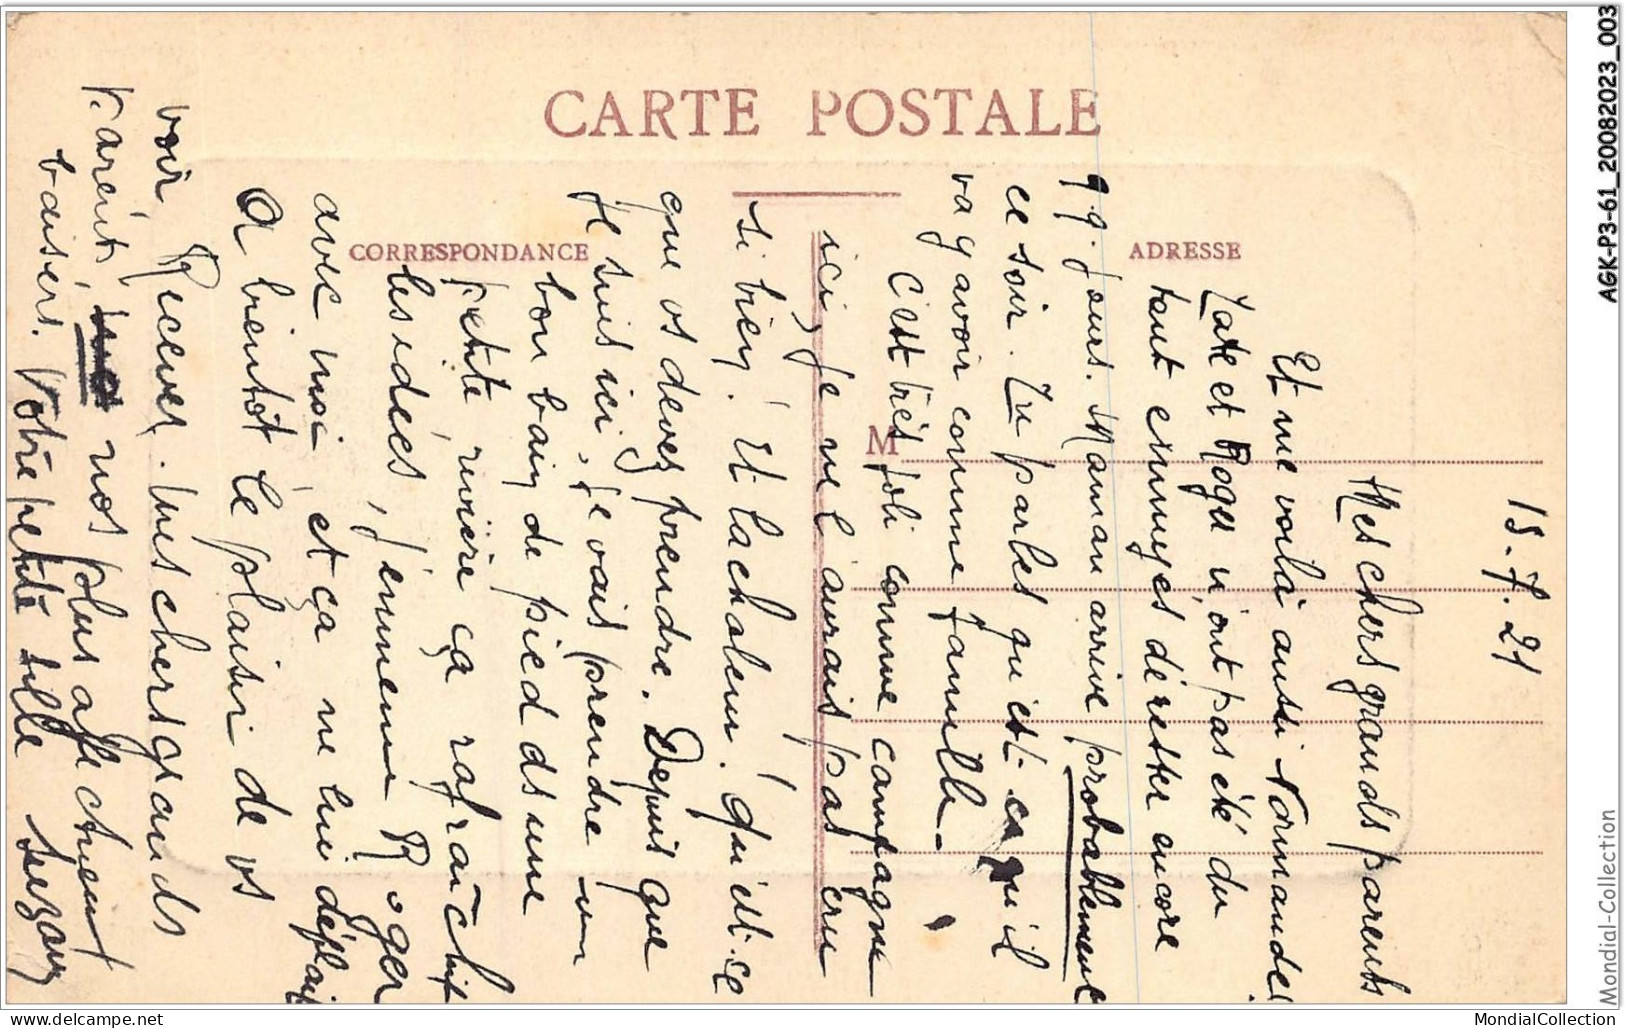 CARTE POSTALE
CORRESPONDANCE
ADRESSE
M
15.7.21
Mes chers grands parents
Et me voilà aussi Normande!
Tate et Roger n'ont pas été du
tout ennuyés de rester encore
99. jours. Maman arrive probablement
ce soir. Tu parles qu'est-ce qu'il
va y avoir comme famille.
C'est très joli comme campagne
ici, je ne l'aurais pas cru
si bien. Et la chaleur! qu'est-ce
que vs devez prendre. Depuis que
je suis ici, je vais prendre un
bon bain de pied ds une
petite rivière ça rafraîchit
les idées, j'emmène Roger
avec moi, et ça ne lui déplait
A bientôt le plaisir de vs
voir. Recevez, mes chers grands
Parents, nos plus affectueux
baisers. Votre petite fille Suzon
AGK-P3-61_20082023_003
Mondial-Collection
www.delcampe.net
MondialCollection